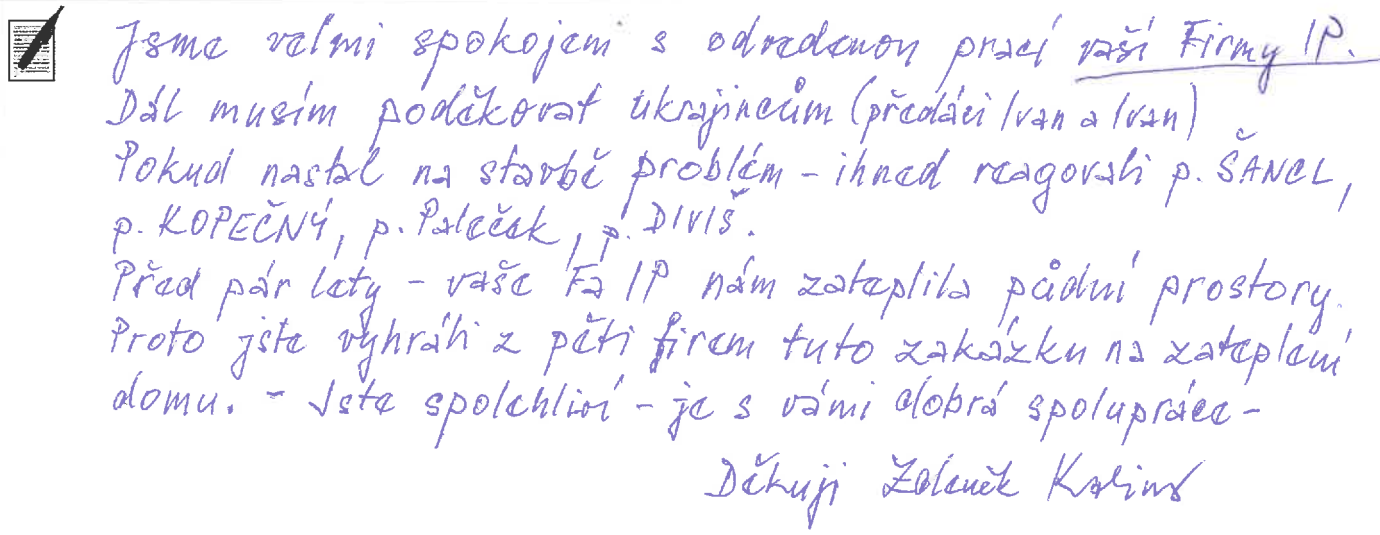 Jsme velmi spokojeni s odvedenou prací vaší Firmy IP.
Dál musím poděkovat ukrajincům (předáci Ivan a Ivan)
Pokud nastal na stavbě problém - ihned reagovali p. ŠANCL,
p. KOPEČNÝ, p. Paleček, p. DIVIŠ.
Před pár lety - vaše Fa IP nám zateplila půdní prostory.
Proto jste vyhráli z pěti firem tuto zakázku na zateplení
domu. - Jste spolehliví - je s vámi dobrá spolupráce -
Děkuji Zdeněk